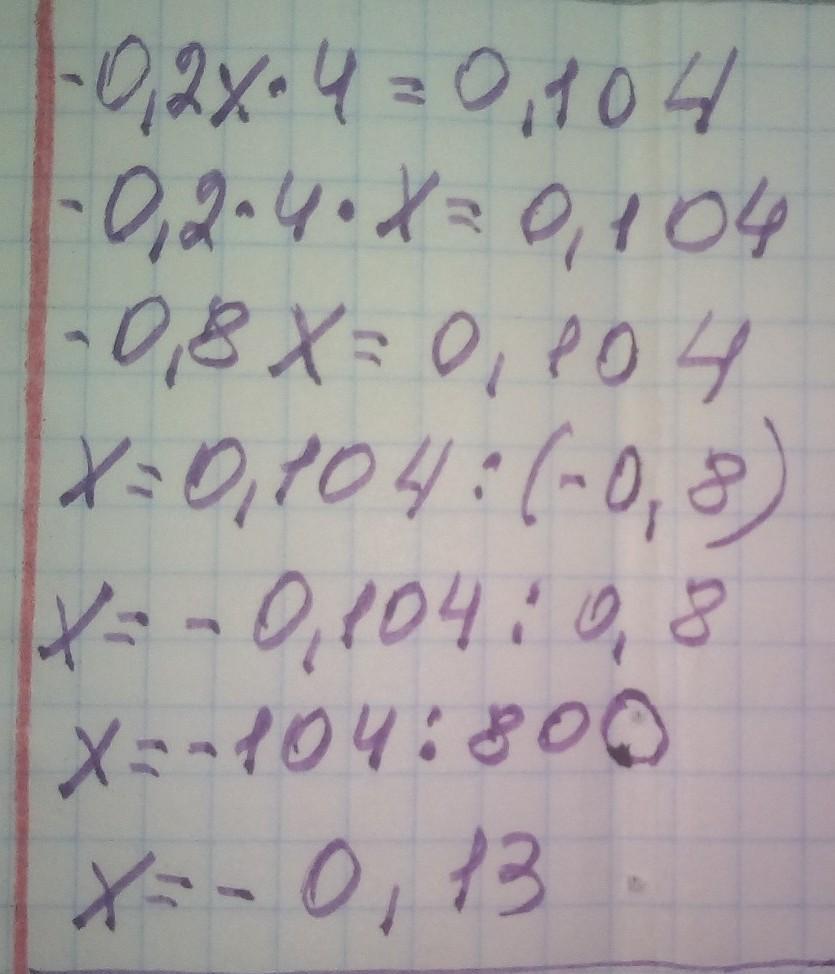 -0,2x·4=0,104
-0,2·4·x=0,104
-0,8x=0,104
x=0,104:(-0,8)
x=-0,104:0,8
x=-104:800
x=-0,13